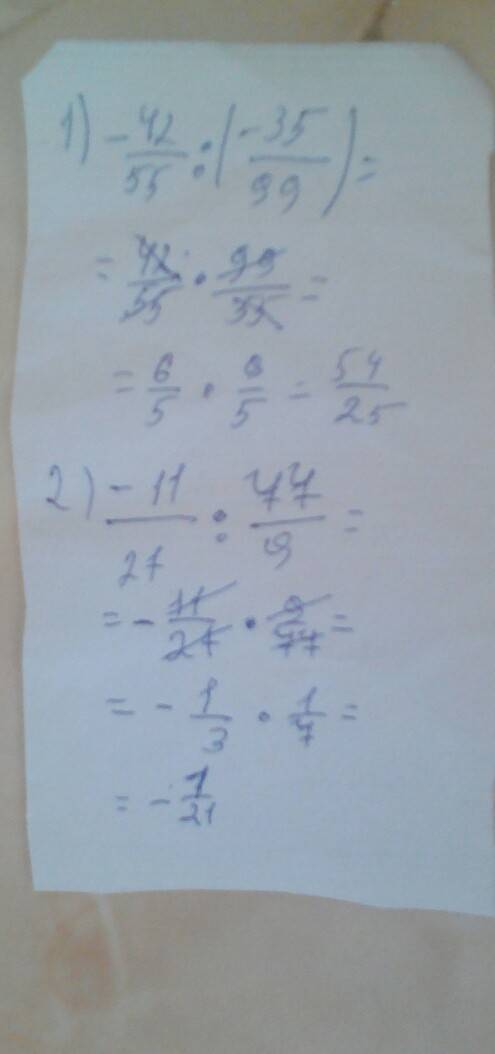 1) -42/55 : (-35/99) =
= 42/55 · 99/35 =
= 6/5 · 9/5 = 54/25
2) -11/27 : 77/9 =
= - 11/27 · 9/77 =
= - 1/3 · 1/7 =
= - 1/21